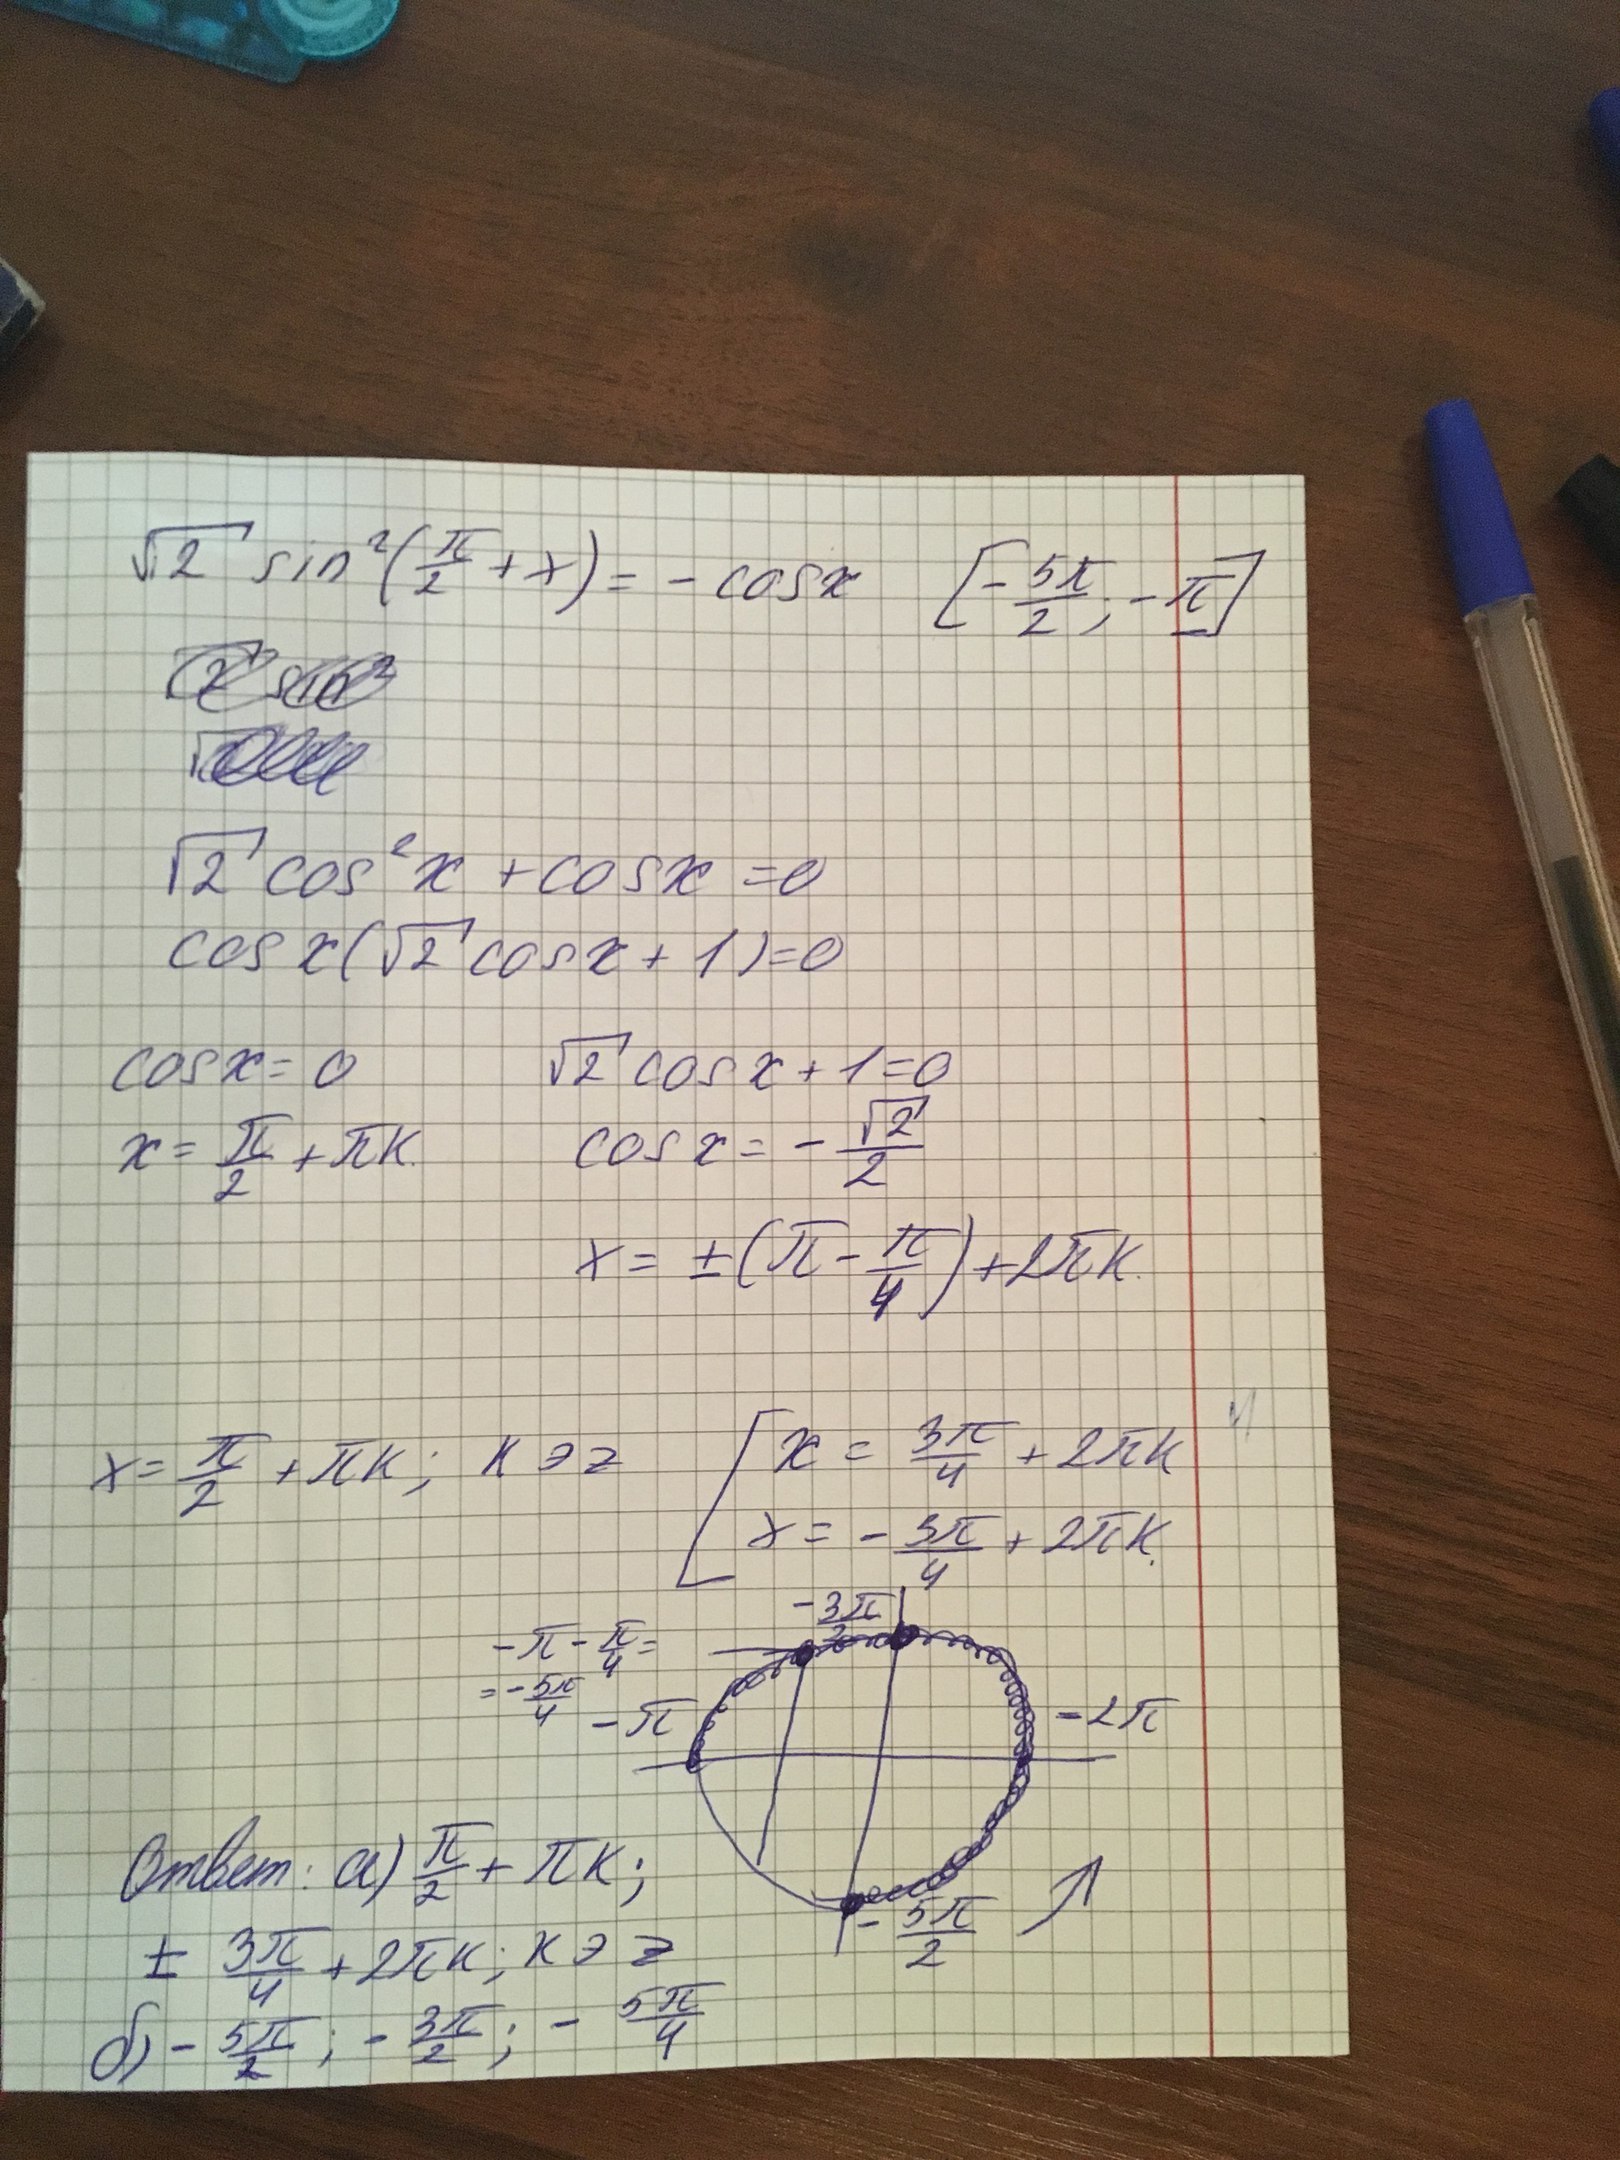 √2 sin²(π/2 + x) = - cosx [-5π/2; -π]
√2 cos²x + cosx = 0
cosx(√2 cosx + 1) = 0
cosx = 0 √2 cosx + 1 = 0
x = π/2 + πк. cosx = - √2/2
x = ±(π - π/4) + 2πк.
x = π/2 + πк; к э z [ x = 3π/4 + 2πк
x = - 3π/4 + 2πк.
-3π/2
-π - π/4 =
= -5π/4
-π -2π
-5π/2
Ответ: а) π/2 + πк;
± 3π/4 + 2πк; к э z
б) - 5π/2; - 3π/2; - 5π/4